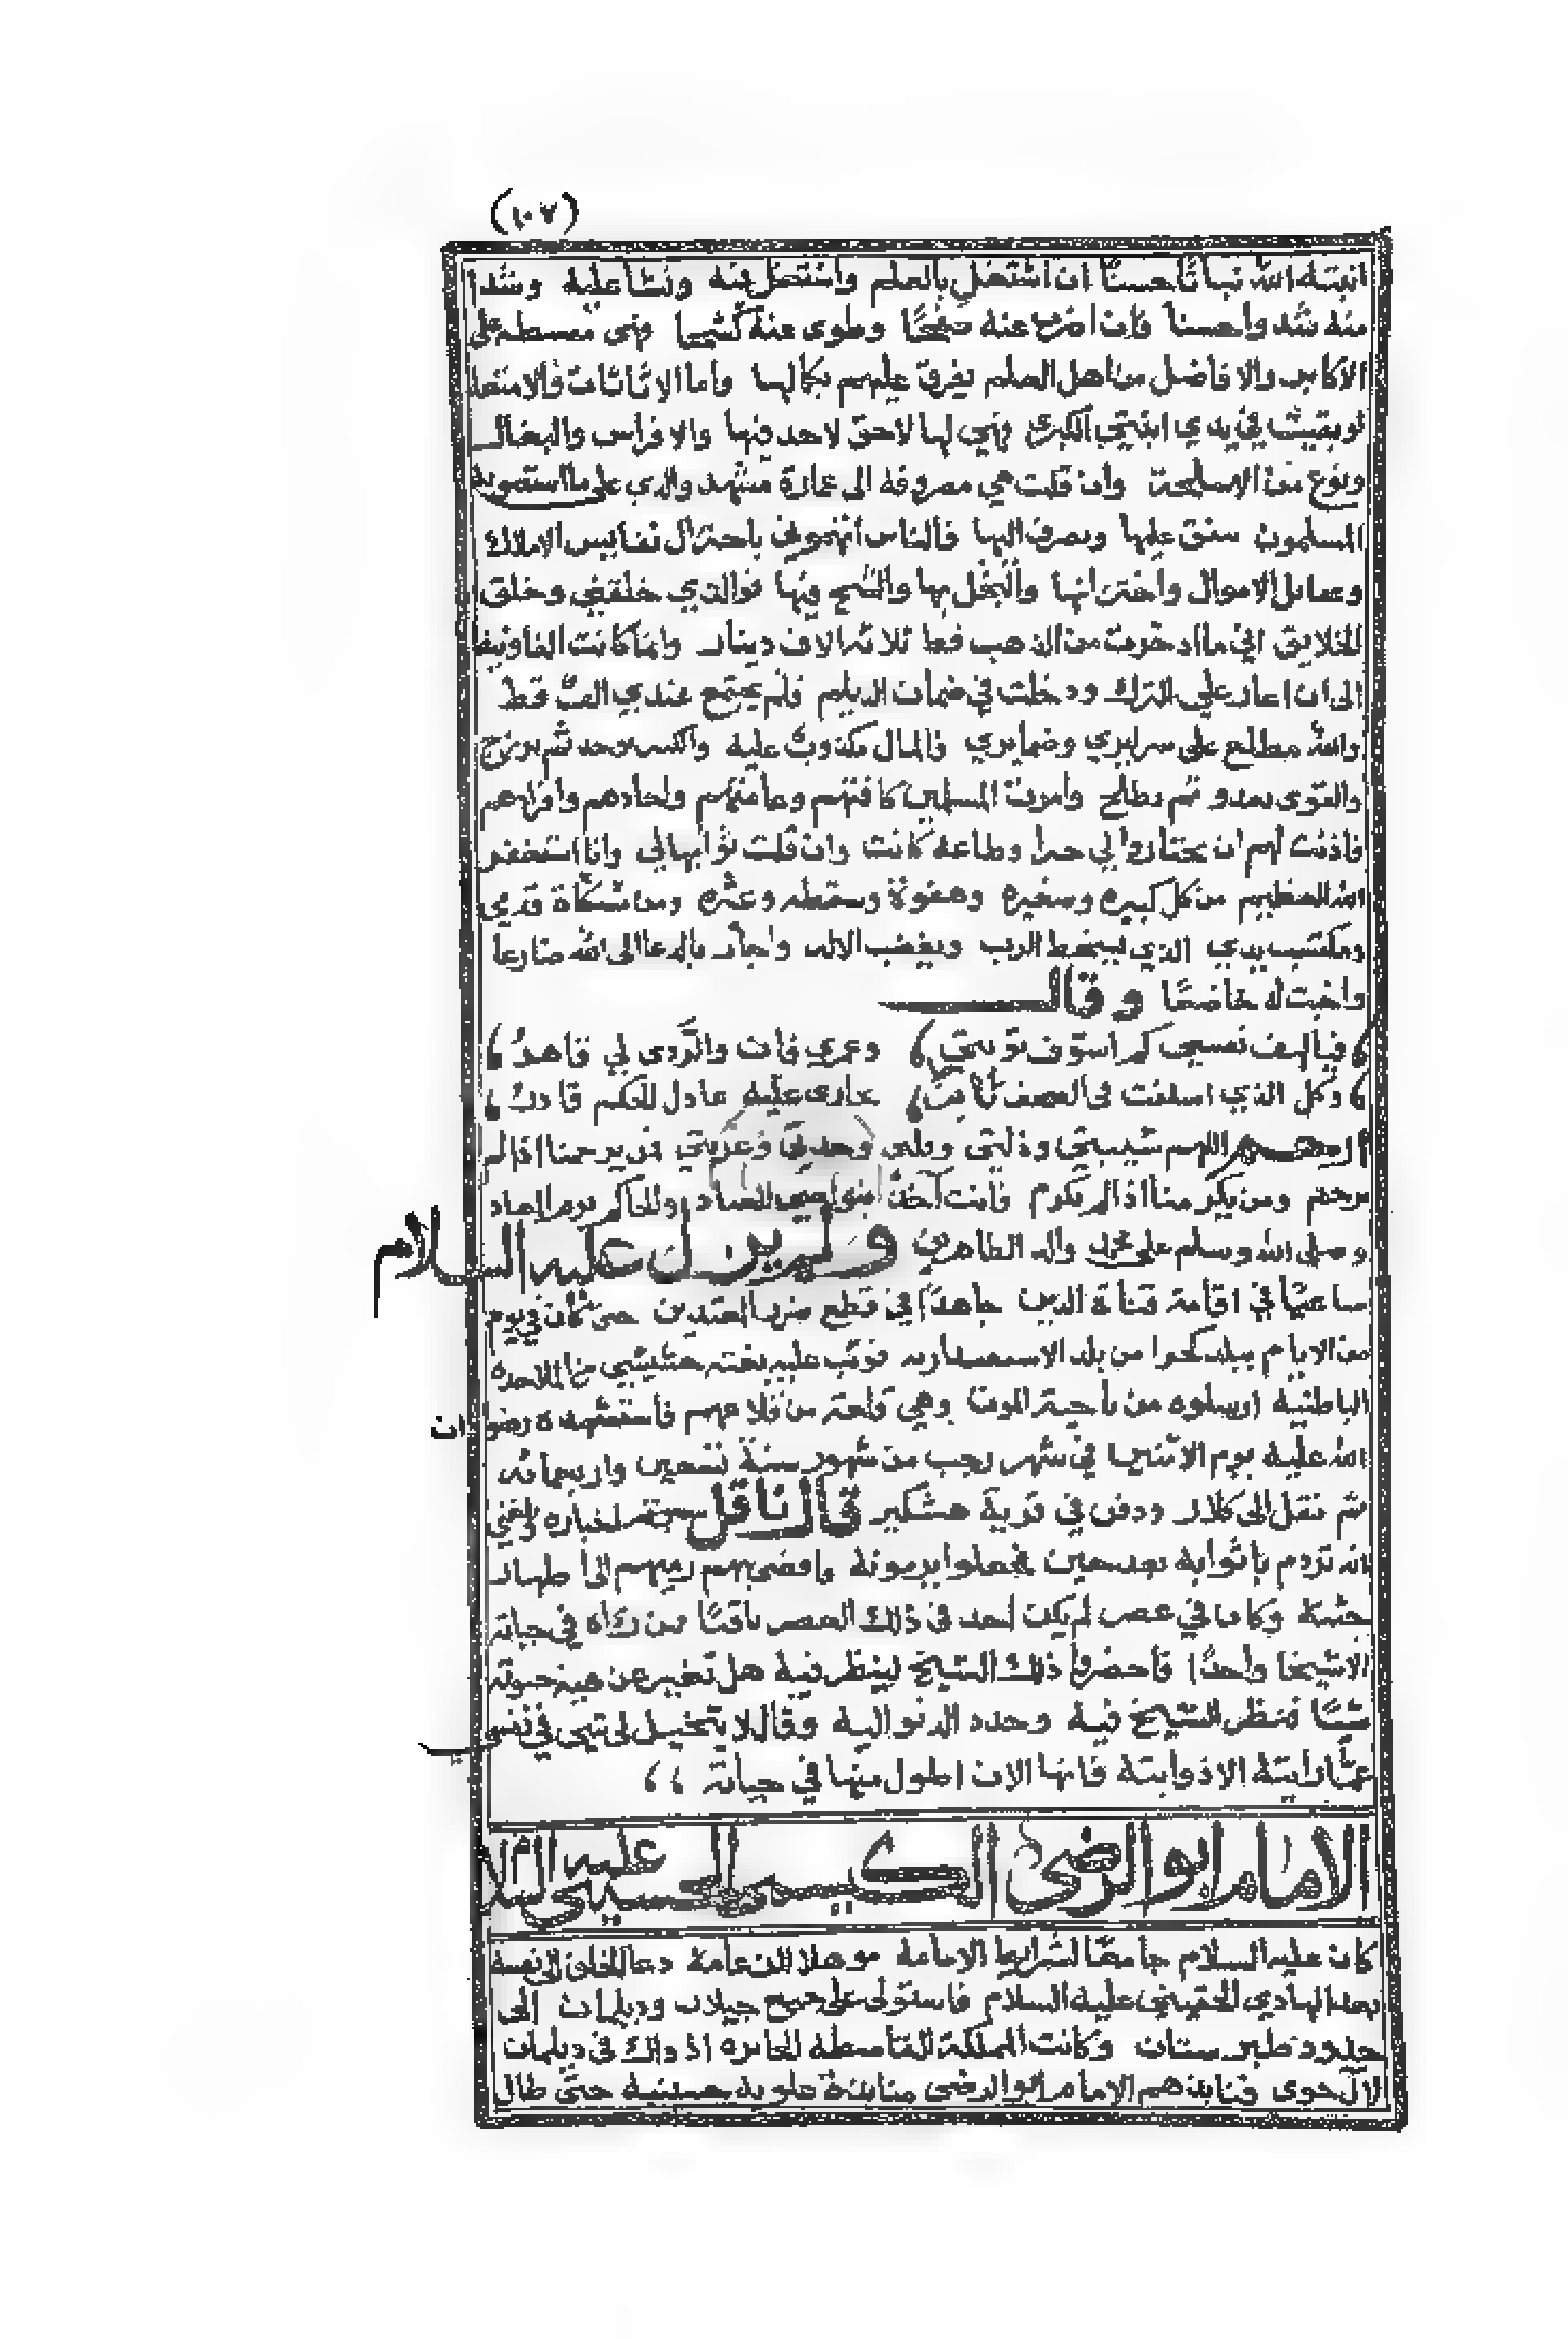 (١٠٧)
انبته الله نباتا حسنا ان اشتغل بالعلم واشتغل فيه ونشا عليه وشدا
منه شدوا حسنا فان اضرب عنه صفحًا وطوى عنه كشحا فهى مقسطه على
الاكابر والافاضل من اهل العلم يفرق عليهم بكمالها واما الاثاثات والامتعة
لو بقيت في يدي ابنتي الكبرى فهي لها لاحق لاحد فيها والافراس والبغال
ونوع من الاسلحة وان قلت هي مصروفة الى عمارة مشهد والدي على ما استصوبه
المسلمون سنفق عليها ويصرف اليها فالناس اتهموني باختزال نفايس الاملاك
وعقايل الاموال واختزانها والبخل بها والشح فيها فوالذي خلقني وخلق
الخلايق اني ما ادخرت من الذهب قط ثلاثه الاف دينار وانما كانت الفا ونيفا
الى ان اغار علي الترك ودخلت في ضمان الديلم فلم يجتمع عندي الف قط
والله مطلع على سرايري وضمايري فالمال مكذوب عليه
والقوى يعدو ثم يطلح وامرت المسلمين كافتهم وعامتهم واحادهم وافرادهم
فاذنت لهم ان يختاروا لي وطاعة كانت وان قلت ثوابها لي وانا استغفر
الله العظيم من كل كبيره وصغيره وهفوة وسقطه وعثره ومن
ومكتسب يدي الذي يسخط الرب ويغضب الاله واجأر بالدعا الى الله ضارعا
واخبت له خاضعًا وقال
فيا لهف نفسي كم اسوف توبتي وعمري فان والردى لي قاهد
وكل الذي اسلفت في الصحف ثابت يجازى عليه عادل الحكم قادر
ارحم اللهم شيبتي وذلتي وبلى وحدتي وغربتي فمن يرحمنا اذا لم
ترحم ومن يكرمنا اذا لم تكرم وانت آخذ بنواصي العباد والحاكم يوم المعاد
وصلى الله وسلم على محمد واله الطاهرين ولم يزل عليه السلام
ساعيًا في اقامة قناة الدين جاهدًا في قطع ضرر المعتدين حتى كان في يوم
من الايام ببلد كجوا من بلد فوثب عليه بغته حشيشي من الملاحدة
الباطنية ارسلوه من ناحية الموت وهي قلعة من قلاعهم فاستشهده رضوان
الله عليه يوم الاثنين في شهر رجب من شهور سنة تسعين واربعمائه
ثم نقل الى كلار ودفن في قرية هشكير قال ناقل اخباره بلغني
انه تردم باثوابه بعد حين فجعلوا يرمونه وافضى بهم رمهم الى
جثته وكان في عصر لم يكن احد في ذلك العصر باقيًا من رآه في حياته
الا شيخا واحدًا فاحضروا ذلك الشيخ لينظر فيه هل تغير عن هيئة حيوته
شيئا فنظر الشيخ فيه وحدد الدنو اليه وقال لا يتخيل لي شي في نفسي
عما رايته الا ذوابته فانها الان اطول منها في حياته
الامام ابو الرضى الكيسمي الحسيني عليه السلام
كان عليه السلام جامعًا لشرايط الامامة موهلا للزعامة دعا الخلق الى نفسه
بعد الهادي الحقيني عليه السلام فاستولى على جميع جيلان وديلمان الى
حدود طبرستان وكانت المملكة القاسطه الجايره اذ ذاك في ديلمان
لال جوى ونابذهم الامام ابو الرضى منابذة علوية حسينية حتى طال